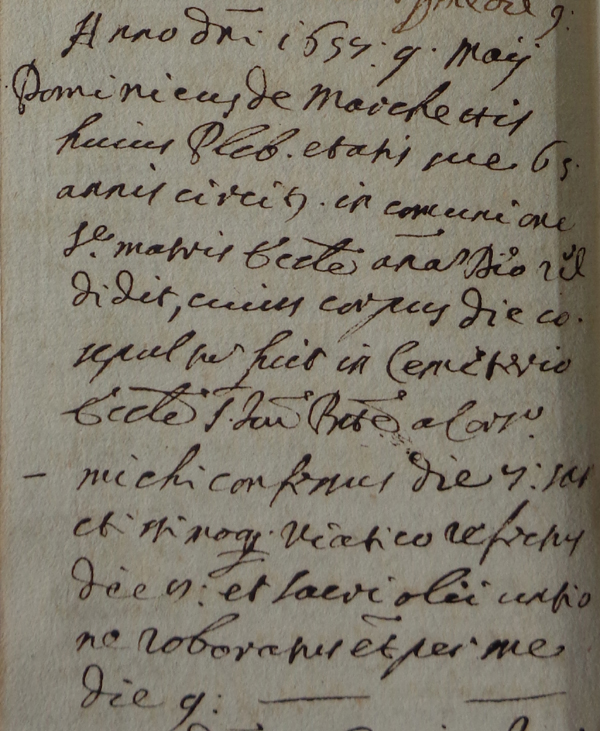 Anno dñi 1657: 9. Maij
Dominicus de Marchettis
huius Pleb. etatis sue 65.
annis circit. in comunione
Sᵉ. matris Eccłe anã Dẽo
didit, cuius corpus die
sepultũ fuit in Cemeterio
Eccłe S. Joã Bñte a
– michi confessus die 7:
ctissimoq; viatico refectus
die 7: et sacri olei unctio
ne roboratus est per me
die 9: